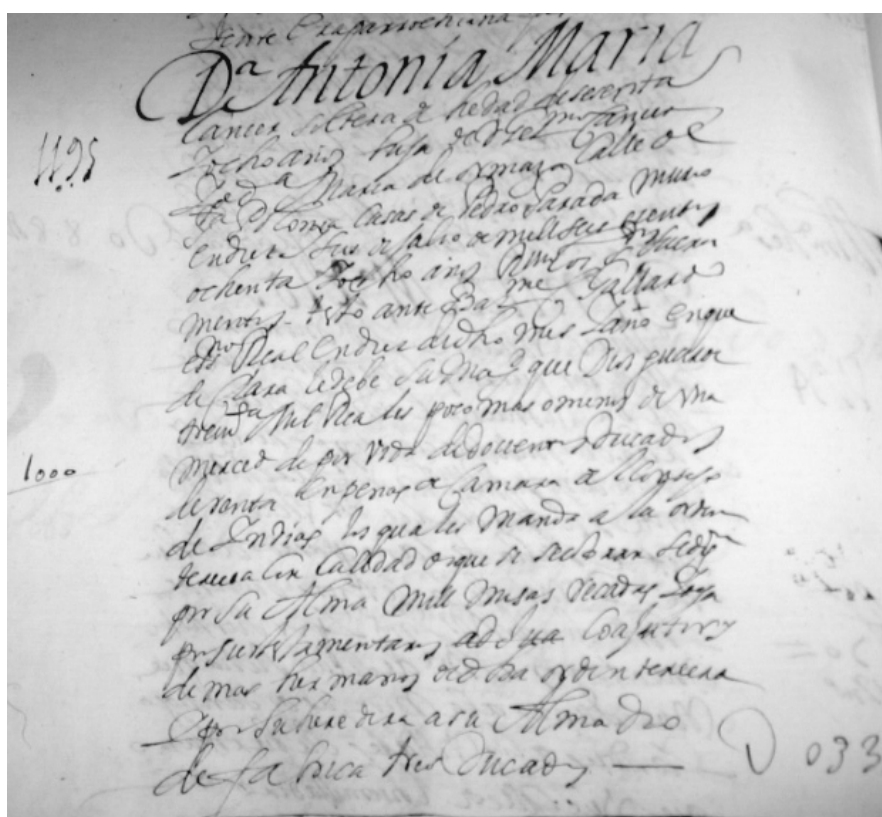 Dª Antonia Maria
Cancer soltera de hedad de setenta
y ocho años hija de Dⁿ Gelmo Cancer
y de Dª Maria de ormaza calle de
casas de Pedro Parada murio
en diez de Julio de mill seis cientos
ochenta y ocho años Rvio los Sⁿ Sacra
mentos. testo ante Barme Gallard
essno Real en diez de dho mes y año en que
declara le debe su Magd que Dios guarde
treinta Mil Reales poco mas o menos de una
merced de por vida de docientos Ducados
de renta en penas de Camara de el consejo
de Indias los quales manda a la orden
tercera con calidad de que si se cobran se digⁿ
por su Alma mill misas reçadas y deja
por sus testamentarios a coajutores
de mas hermanos de dha orden tercera
y por su heredera a su Alma dio
de fabrica tres ducados
1195
1000
033